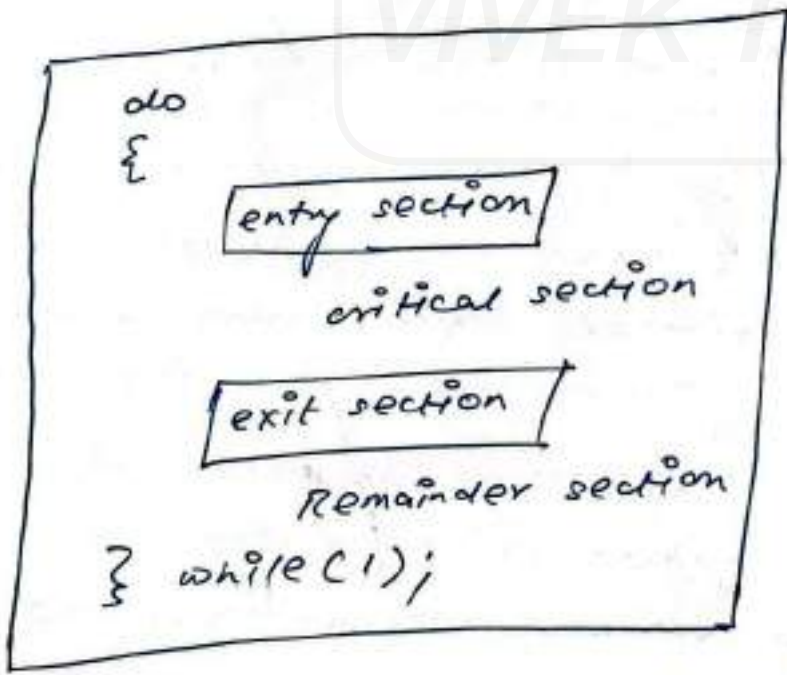 VIVEK T
do
{
entry section
critical section
exit section
Remainder section
} while (1);